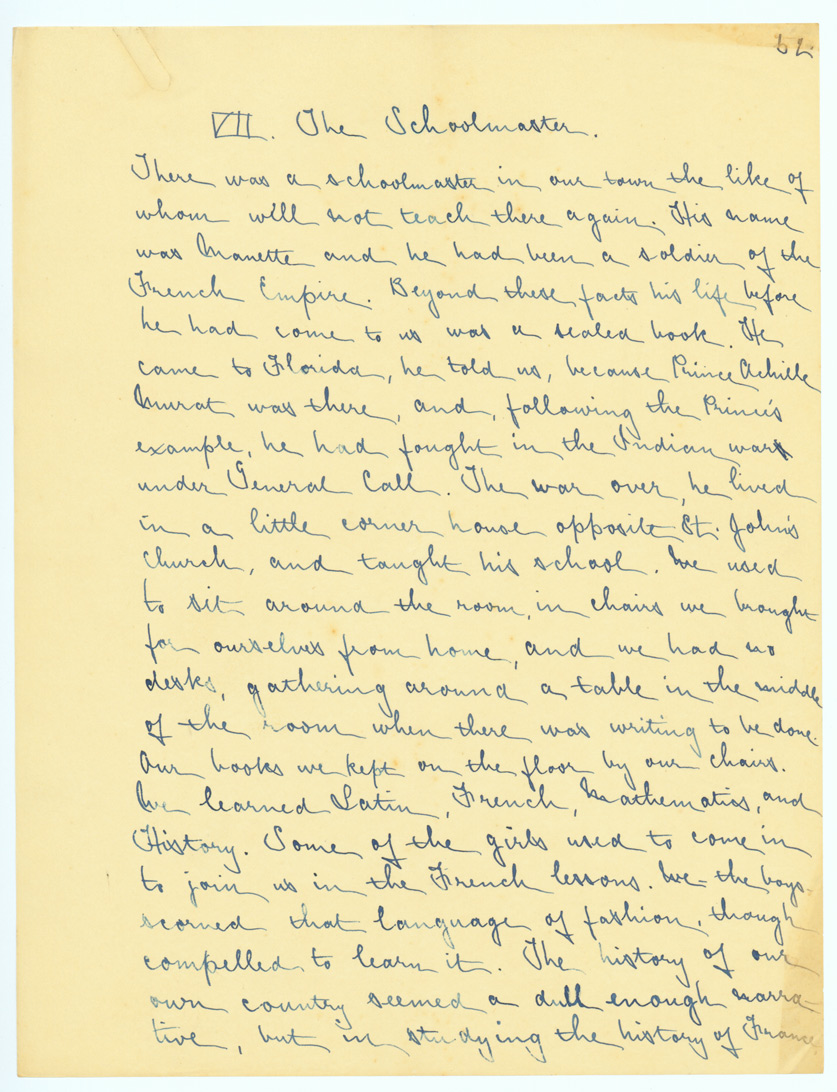 62
VII. The Schoolmaster.
There was a schoolmaster in our town the like of
whom will not teach there again. His name
was Manette and he had been a soldier of the
French Empire. Beyond these facts his life before
he had come to us was a sealed book. He
came to Florida, he told us, because Prince Achille
Murat was there, and, following the Prince's
example, he had fought in the Indian war
under General Call. The war over, he lived
in a little corner house opposite St. John's
Church, and taught his school. We used
to sit around the room, in chairs we brought
for ourselves from home, and we had no
desks, gathering around a table in the middle
of the room when there was writing to be done.
Our books we kept on the floor by our chairs.
We learned Latin, French, Mathematics, and
History. Some of the girls used to come in
to join us in the French lessons. We - the boys -
scorned that language of fashion, though
compelled to learn it. The history of our
own country seemed a dull enough narra-
tive, but in studying the history of France